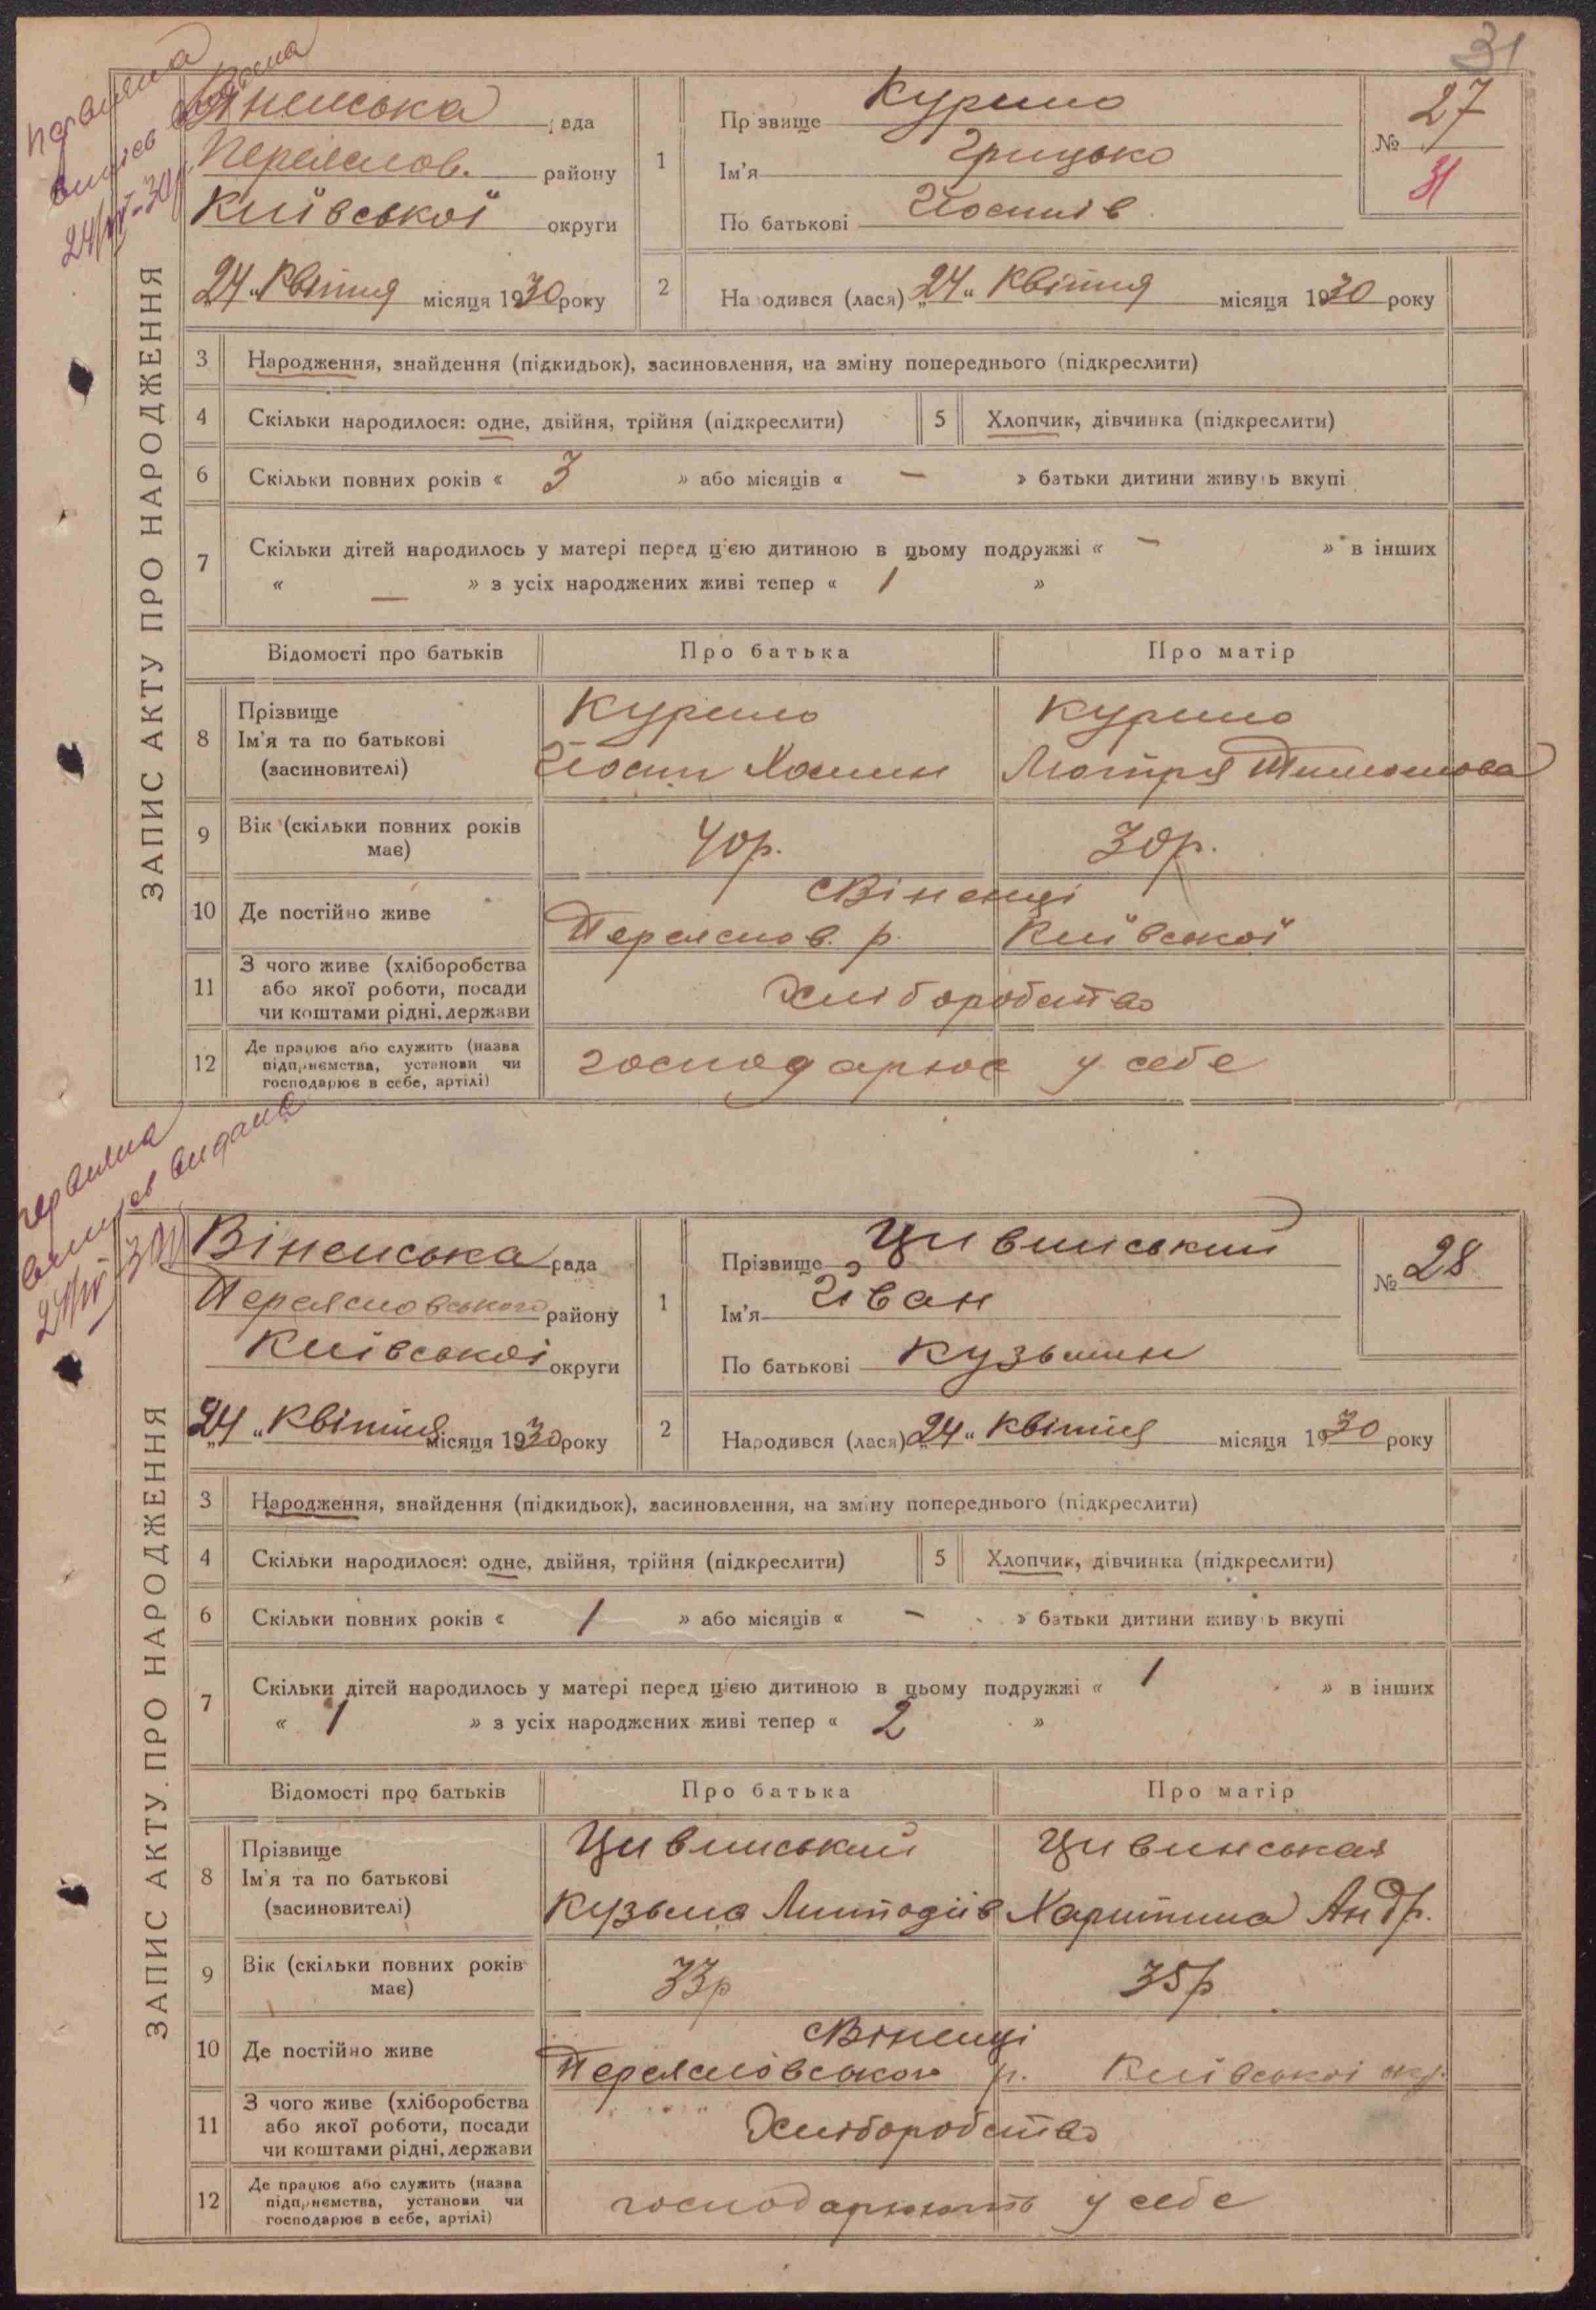 31
Первісна
виписв видана
24/IV-30р.
ЗАПИС АКТУ ПРО НАРОДЖЕННЯ
Віненська рада
Переяслов. району
Київської округи
„24“ Квітня місяця 1930 року
1
Прізвище Курило
Ім'я Грицько
По батькові Йосипів
№ 27
31
2
Народився (лася) „24“ Квітня місяця 1930 року
3 Народження, знайдення (підкидьок), засиновлення, на зміну попереднього (підкреслити)
4 Скільки народилося: одне, двійня, трійня (підкреслити) 5 Хлопчик, дівчинка (підкреслити)
6 Скільки повних років « 3 » або місяців « – » батьки дитини живуть вкупі
7 Скільки дітей народилось у матері перед цією дитиною в цьому подружжі « – » в інших
« – » з усіх народжених живі тепер « 1 »
Відомості про батьків Про батька Про матір
8 Прізвище
Ім'я та по батькові
(засиновителі)
Курило
Йосип Хомин
Курило
Мотря Тимошова
9 Вік (скільки повних років
має)
40р. 30р.
10 Де постійно живе
с Віненці
Переяслов. р. Київської
11 З чого живе (хліборобства
або якої роботи, посади
чи коштами рідні, держави
Хліборобство
12 Де працює або служить (назва
підприємства, установи чи
господарює в себе, артілі)
господарює у себе
виписв видана
ЗАПИС АКТУ ПРО НАРОДЖЕННЯ
Віненська рада
Переясловського району
Київської округи
„24“ Квітня місяця 1930 року
1
Прізвище Цивинський
Ім'я Іван
По батькові Кузьмин
№ 28
2
Народився (лася) „24“ Квітня місяця 1930 року
3 Народження, знайдення (підкидьок), засиновлення, на зміну попереднього (підкреслити)
4 Скільки народилося: одне, двійня, трійня (підкреслити) 5 Хлопчик, дівчинка (підкреслити)
6 Скільки повних років « 1 » або місяців « – » батьки дитини живуть вкупі
7 Скільки дітей народилось у матері перед цією дитиною в цьому подружжі « 1 » в інших
« 1 » з усіх народжених живі тепер « 2 »
Відомості про батьків Про батька Про матір
8 Прізвище
Ім'я та по батькові
(засиновителі)
Цивинський
Кузьма
Цивинськая
Харитина Андр.
9 Вік (скільки повних років
має)
33р 35р
10 Де постійно живе
с Віненці
Переясловського р. Київської окр.
11 З чого живе (хліборобства
або якої роботи, посади
чи коштами рідні, держави
Хліборобство
12 Де працює або служить (назва
підприємства, установи чи
господарює в себе, артілі)
господарюють у себе